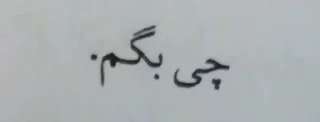 چی بگم.